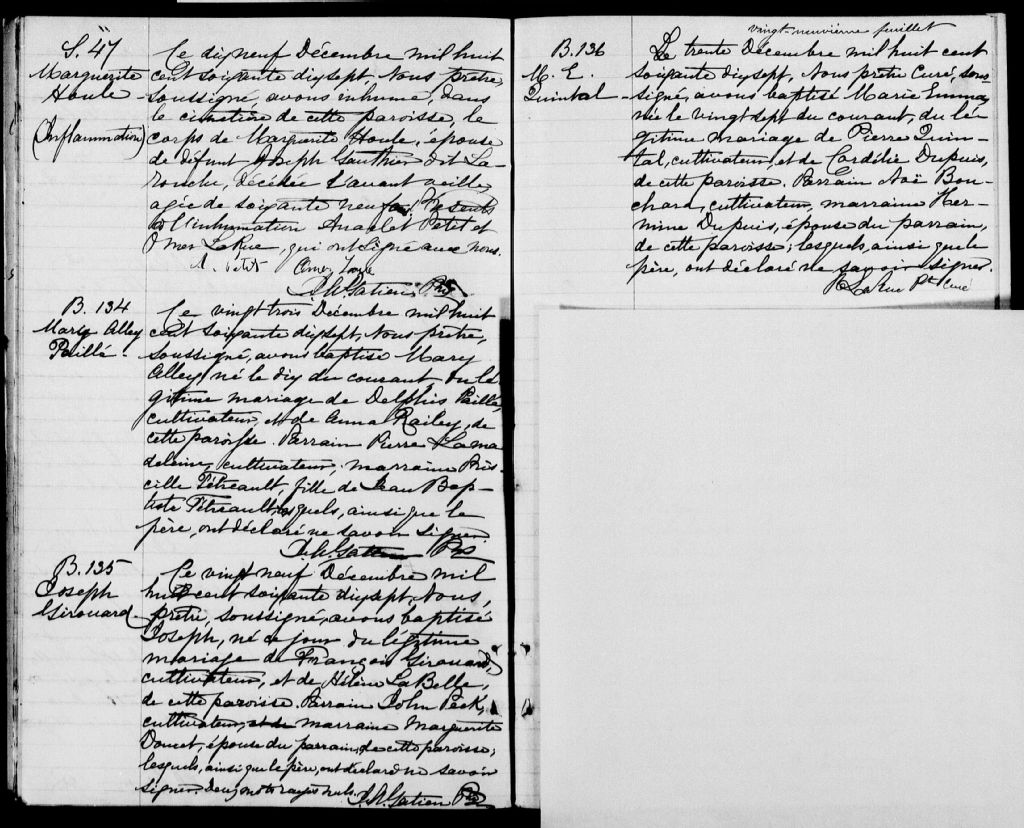 S. 47
Marguerite
Houle
(Inflammation)
Ce dix neuf Décembre mil huit
cent soixante dix sept, Nous prêtre,
soussigné, avons inhumé, dans
le cimetière de cette paroisse, le
corps de Marguerite Houle, épouse
de défunt Joseph Gauthier dit La-
ronche, décédée l'avant veille,
agée de soixante neuf ans. Présents
à l'inhumation Anaclet Petit et
Omer LaRue, qui ont signé avec nous.
A. Petit Omer Larue
J. A. Gatien Ptre
B. 134
Mary Alley
Paillé.
Ce vingt trois Décembre mil huit
cent soixante dix sept, Nous prêtre,
soussigné, avons baptisé Mary
Alley, né le dix du courant, du lé
gitime mariage de Delphis Paillé,
cultivateur, et de Anna Railey, de
cette paroisse. Parrain Pierre Lama
deleine, cultivateur; marraine Pris-
cille Tétreault, fille de Jean Bap-
tiste Tétreault, lesquels, ainsi que le
père, ont déclaré ne savoir signer.
J. A. Gatien Ptre
B. 135
Joseph
Girouard
Ce vingt neuf Décembre mil
huit cent soixante dix sept, Nous,
prêtre, soussigné, avons baptisé
Joseph, né ce jour du légitime
mariage de François Girouard,
cultivateur, et de Hélène LaBelle,
de cette paroisse. Parrain John Peck,
cultivateur, et de marraine Marguerite
Doucet, épouse du parrain, de cette paroisse;
lesquels, ainsi que le père, ont déclaré ne savoir
signer. Deux mots rayés nuls.
J. A. Gatien Ptre
vingt-neuvième feuillet
B. 136
M. E.
Quintal
Le trente Décembre mil huit cent
soixante dix sept, Nous prêtre Curé, sous-
signé, avons baptisé Marie Emma,
née le vingt sept du courant, du lé-
gitime mariage de Pierre Quin-
tal, cultivateur, et de Cordélie Dupuis,
de cette paroisse. Parrain Noë Bou-
chard, cultivateur, marraine Her-
mine Dupuis, épouse du parrain,
de cette paroisse; lesquels, ainsi que le
père, ont déclaré ne savoir signer.
LaRue Ptre Curé